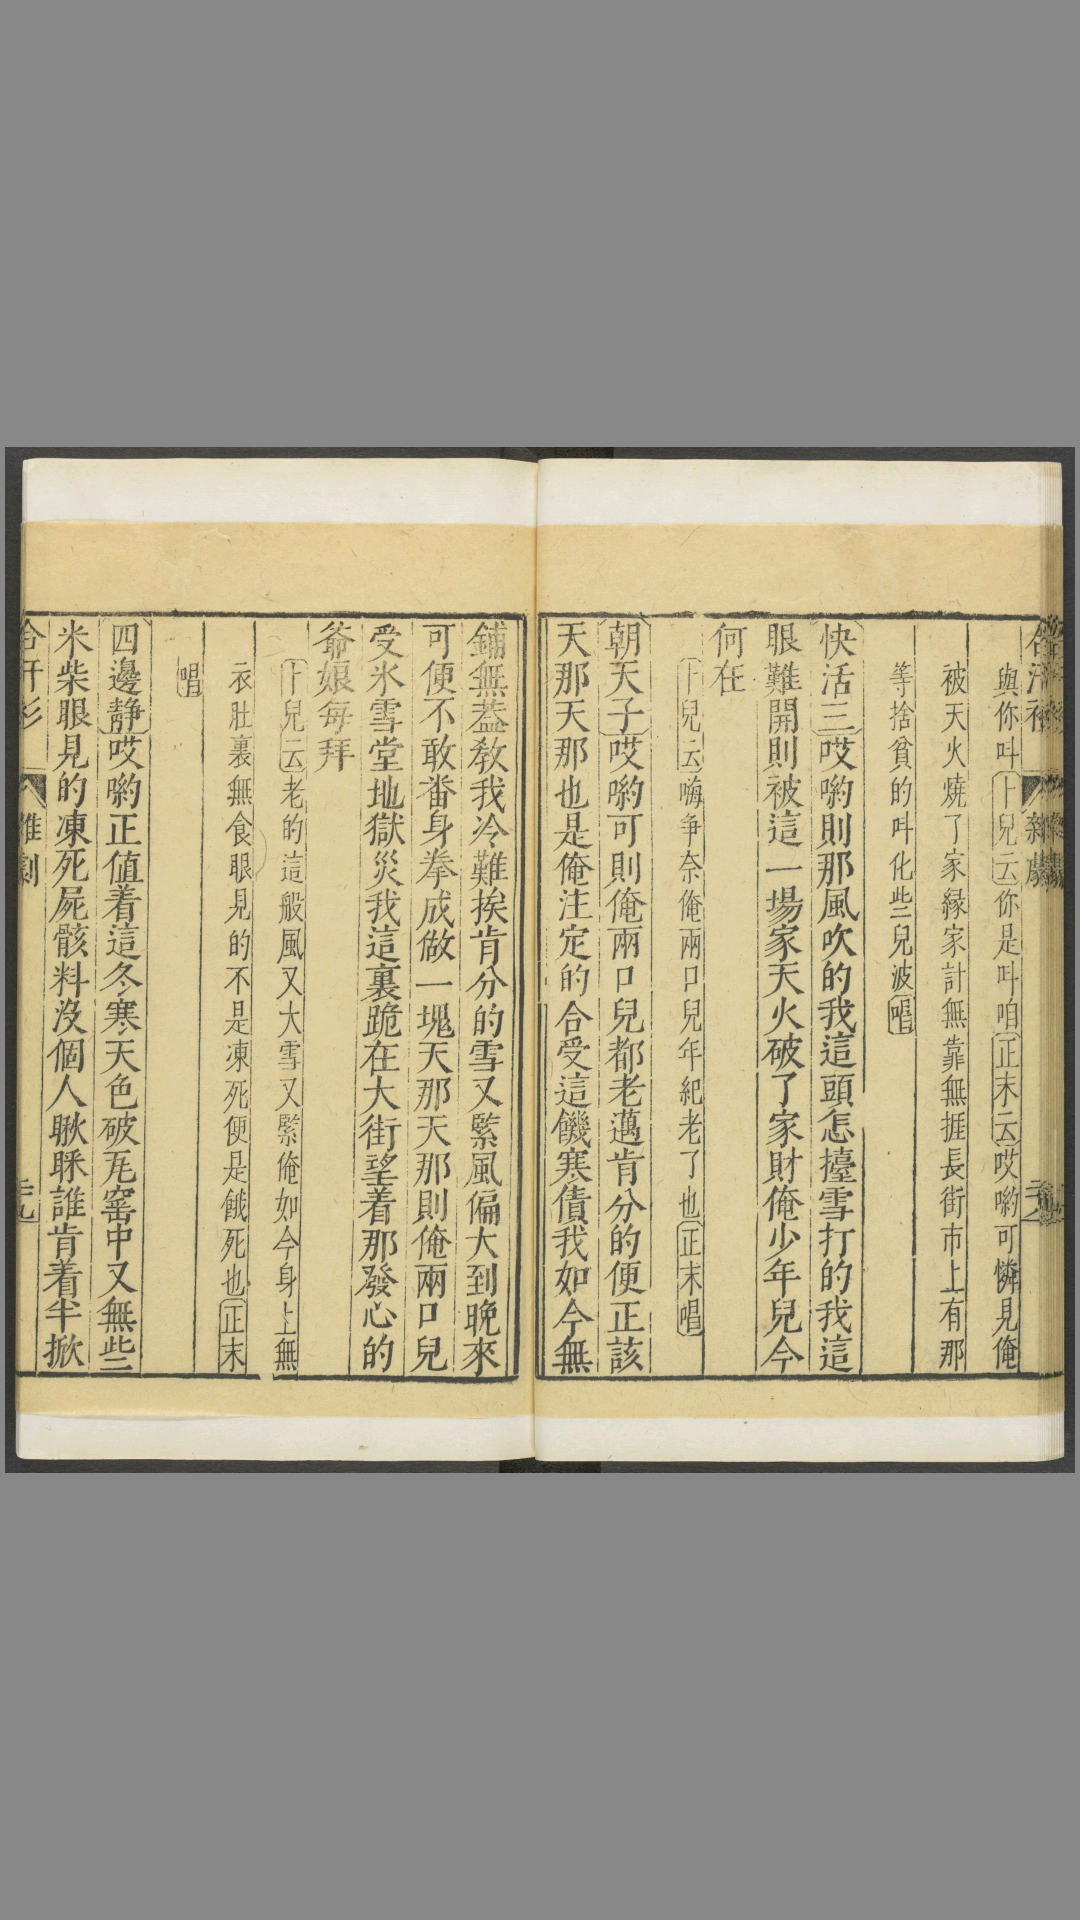 與你叫卜兒云你是叫咱正末云哎喲可憐見俺
被天火燒了家緣家計無靠無捱長街市上有那
等捨貧的叫化些兒波唱
快活三哎喲則那風吹的我這頭怎擡雪打的我這
眼難開則被這一場家天火破了家財俺少年兒今
何在
卜兒云嗨爭奈俺兩口兒年紀老了也正末唱
朝天子哎喲可則俺兩口兒都老邁肯分的便正該
天那天那也是俺注定的合受這饑寒債我如今無
鋪無蓋教我冷難挨肯分的雪又緊風偏大到晚來
可便不敢番身拳成做一塊天那天那則俺兩口兒
受氷雪堂地獄災我這裏跪在大街望着那發心的
爺娘每拜
卜兒云老的這般風又大雪又緊俺如今身上無
衣肚裏無食眼見的不是凍死便是餓死也正末
唱
四邊靜哎喲正值着這冬寒天色破瓦窰中又無些
米柴眼見的凍死屍骸料沒個人瞅睬誰肯着半掀
合汗衫 雜劇